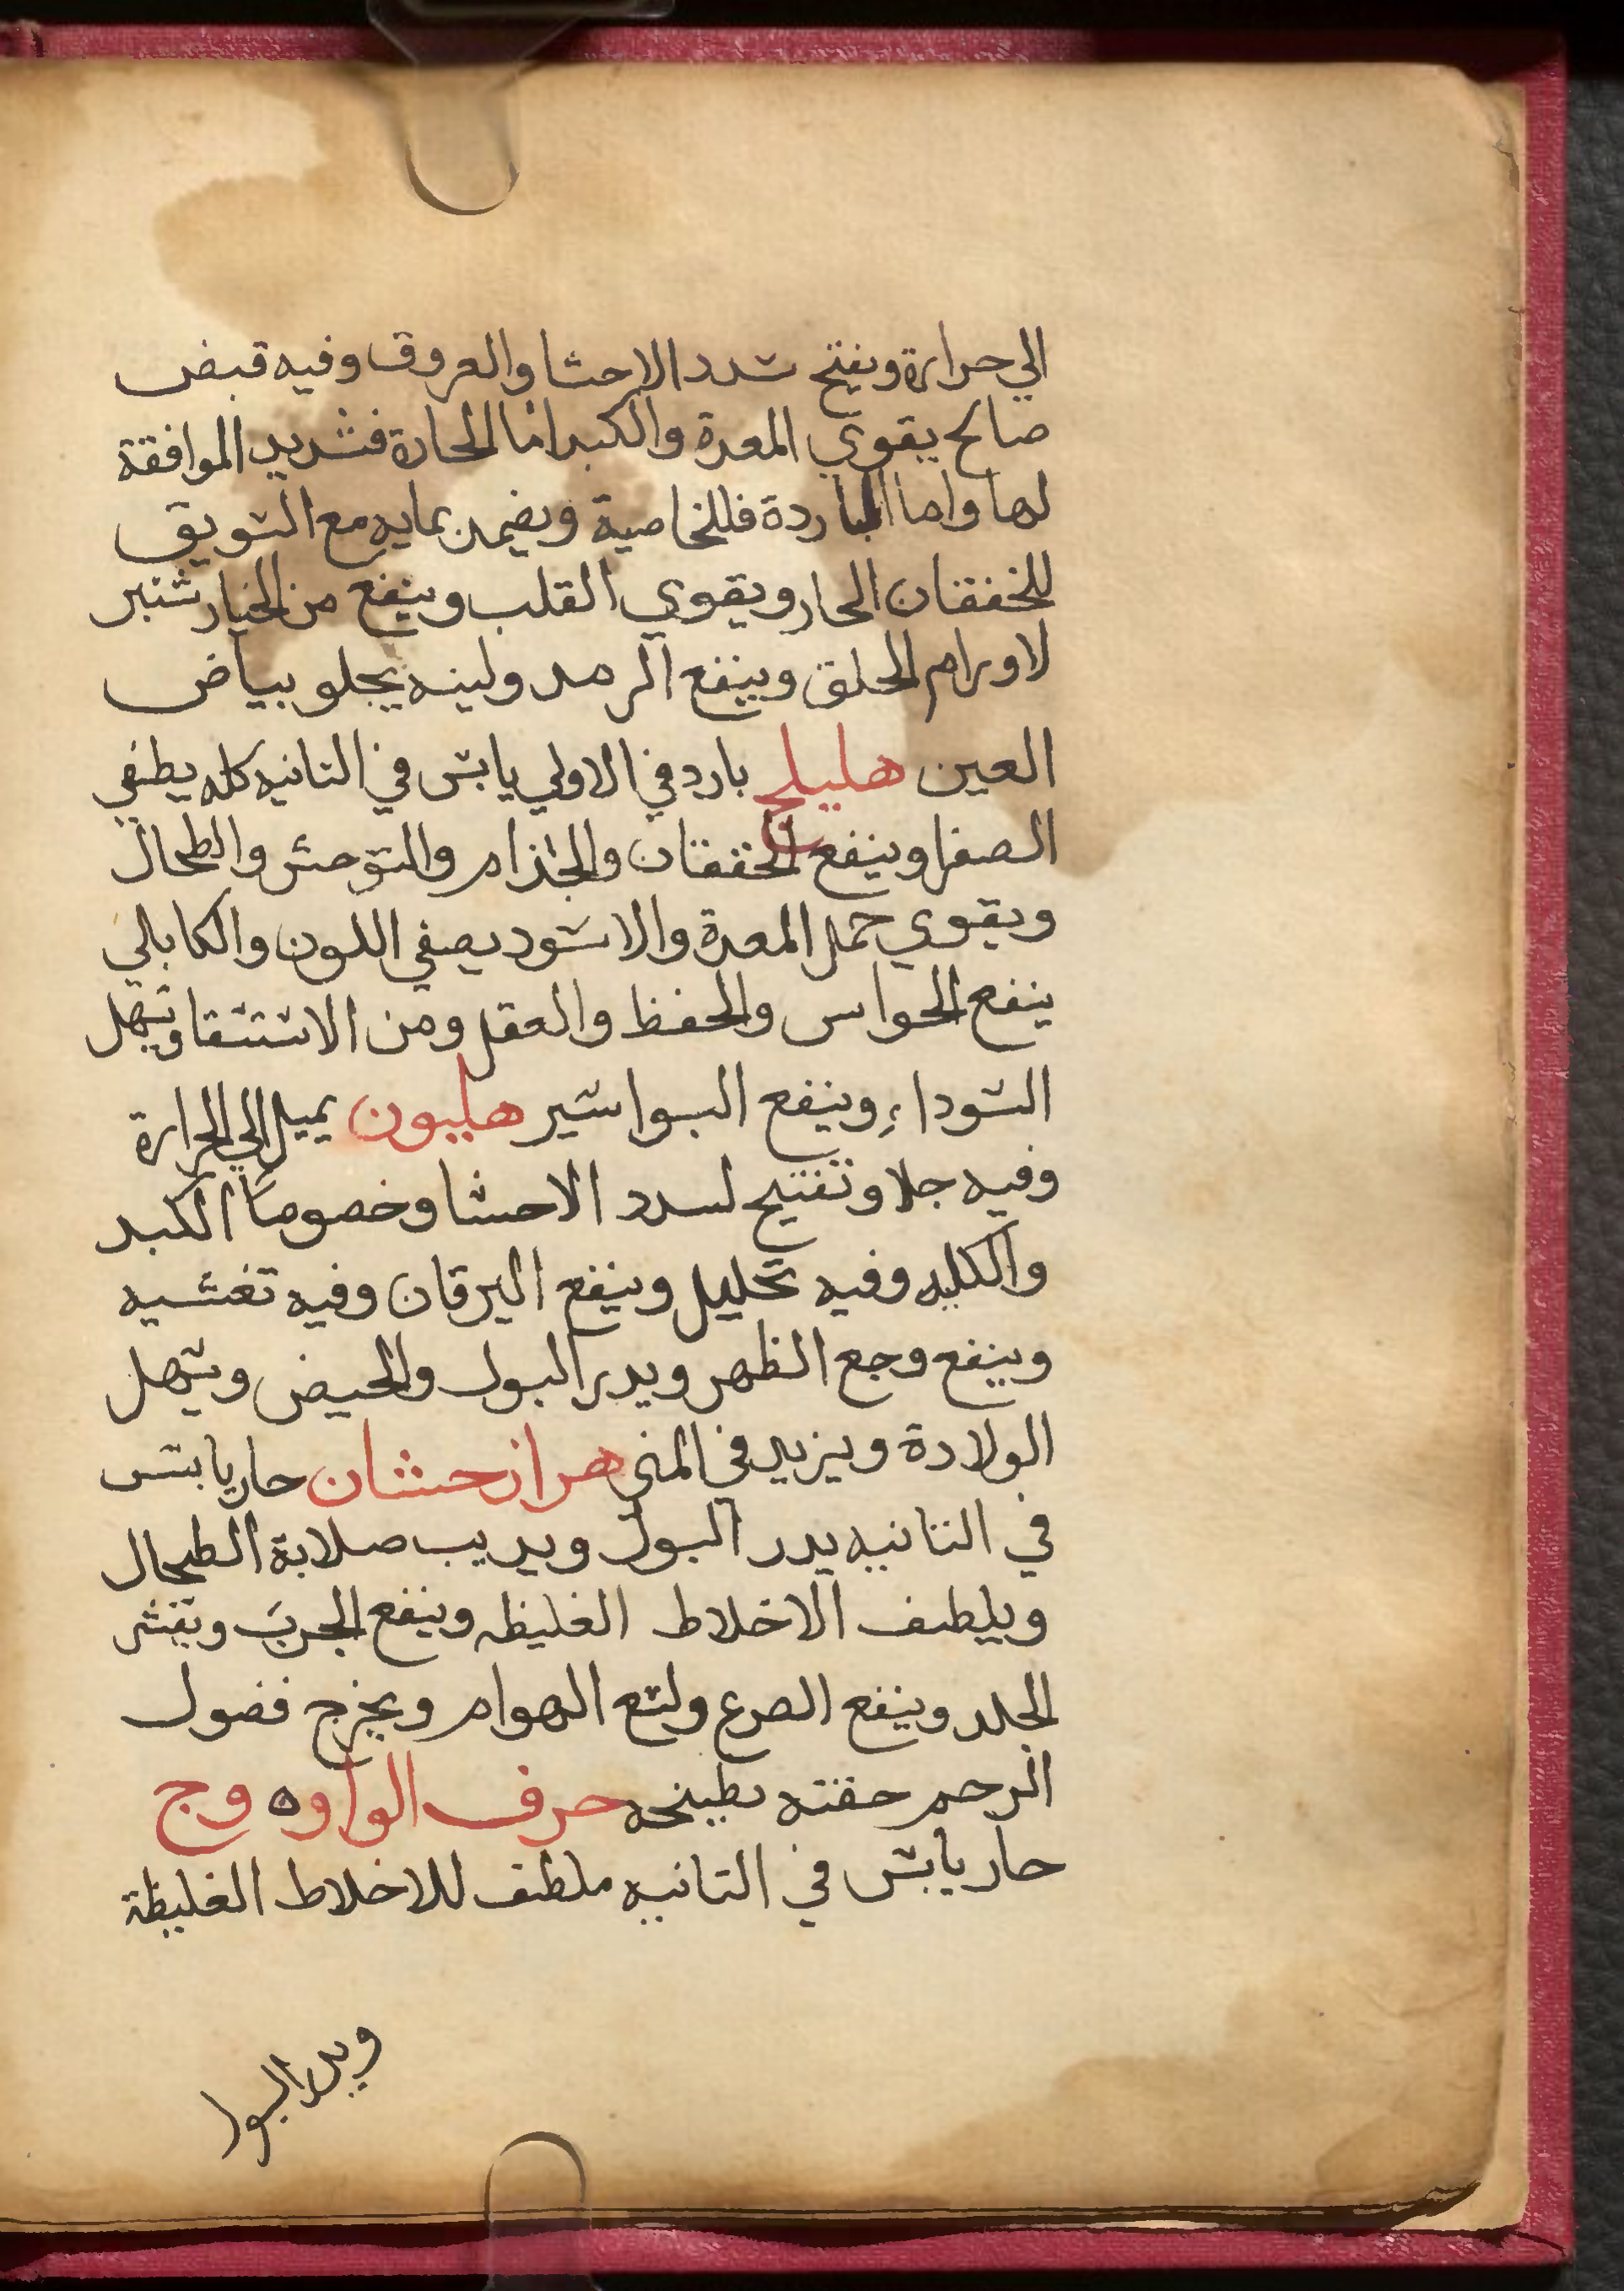 الي حرارة ويفتح سدد الاحشا والعروق وفيه قبض
صالح يقوي المعدة والكبد اما الحارة فشديد الموافقة
لها واما الباردة فللخاصية ويضمد بمايه مع السويق
للخفقان الحار ويقوي القلب وينفع من الخيار شنبر
لاورام الحلق وينفع الرمد ولبنه يجلو بياض
العين هليلج بارد في الاولي يابس في التانيه كله يطفي
الصفرا وينفع الخفقان والجذام والتوحش والطحال
ويقوي خمل المعدة والاسود يصفي اللون والكابلي
ينفع الحواس والحفظ والعقل ومن الاستسقا ويسهل
السوداء وينفع البواسير هليون يميل الي الحرارة
وفيه جلا وتفتيح لسدد الاحشا وخصوصا الكبد
والكليه وفيه تحليل وينفع اليرقان وفيه تغشيه
وينفع وجع الظهر ويدر البول والحيض ويسهل
الولادة ويزيد في المني هزار حشان حار يابس
في التانيه يدر البول ويديب صلابة الطحال
ويلطف الاخلاط الغليظه وينفع الجرب وتقشر
الجلد وينفع الصرع ولسع الهوام ويخرج فضول
الرحم حقنته بطبيخه حرف الواو ه وج
حار يابس في التانيه ملطف للاخلاط الغليظة
ويدر البول